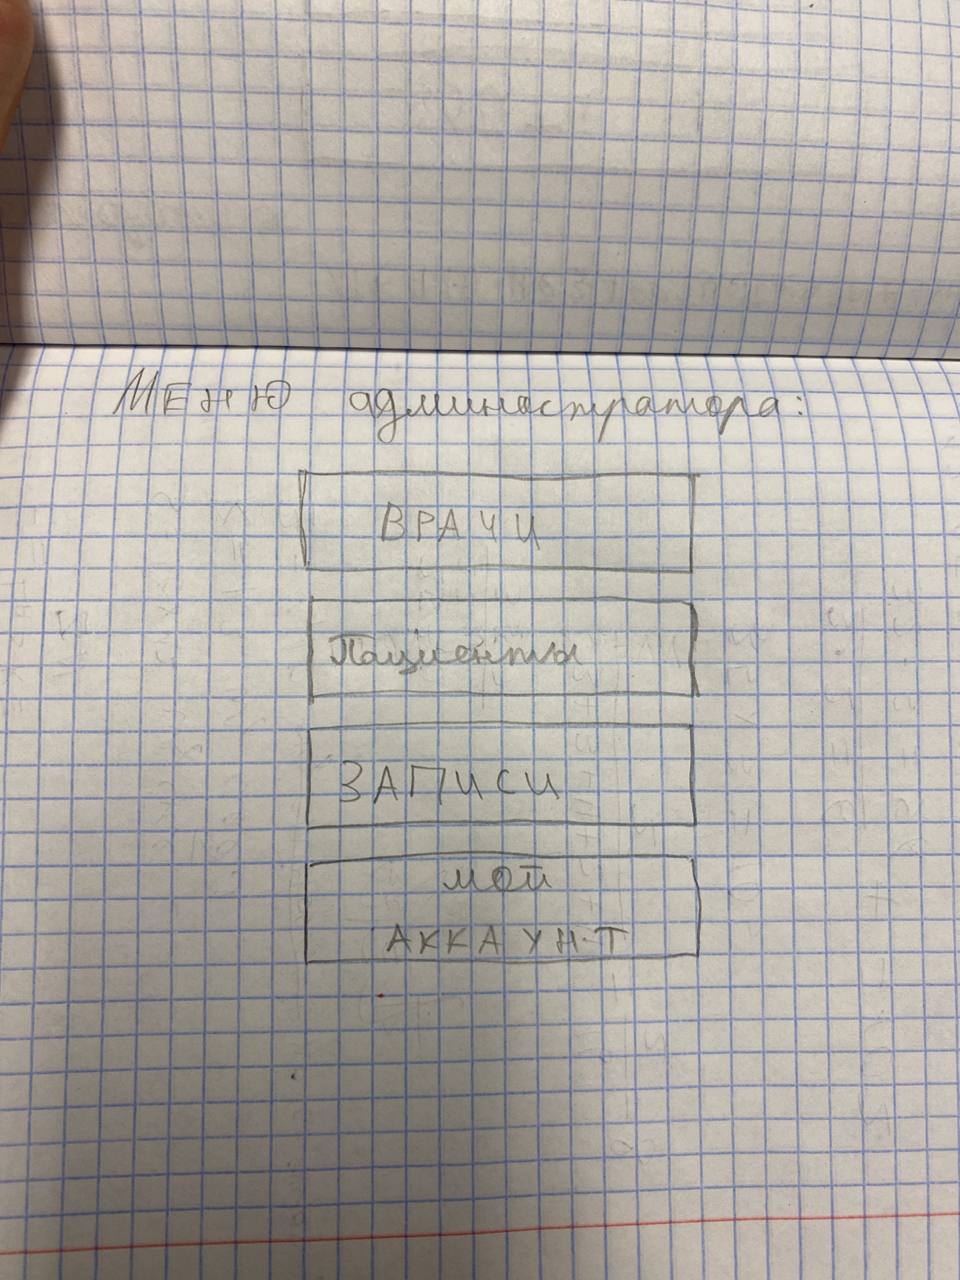 Меню администратора:
ВРАЧИ
Пациенты
ЗАПИСИ
МОЙ
АККАУНТ